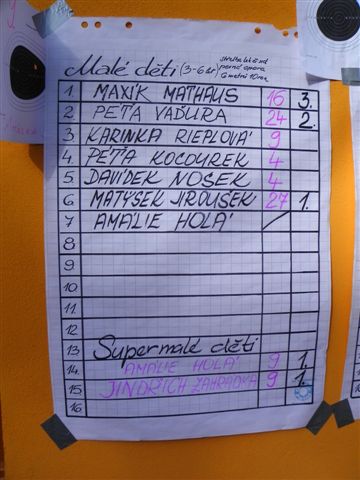 Malé děti (3-6 let)
1. MAXÍK MATHAUS 16 3.
2. PEŤA VAĎURA 24 2.
3 KARINKA RIEPLOVÁ 9
4. PÉŤA KOCOUREK 4
5 DAVÍDEK NOSEK 4
6 MATÝSEK JIROUŠEK 27 1.
7 AMÁLIE HOLÁ
8
9
10
11
12
13. Supermalé děti
14. AMÁLIE HOLÁ 9 1.
15. JINDŘICH ZAHRADKA 9 1.
16